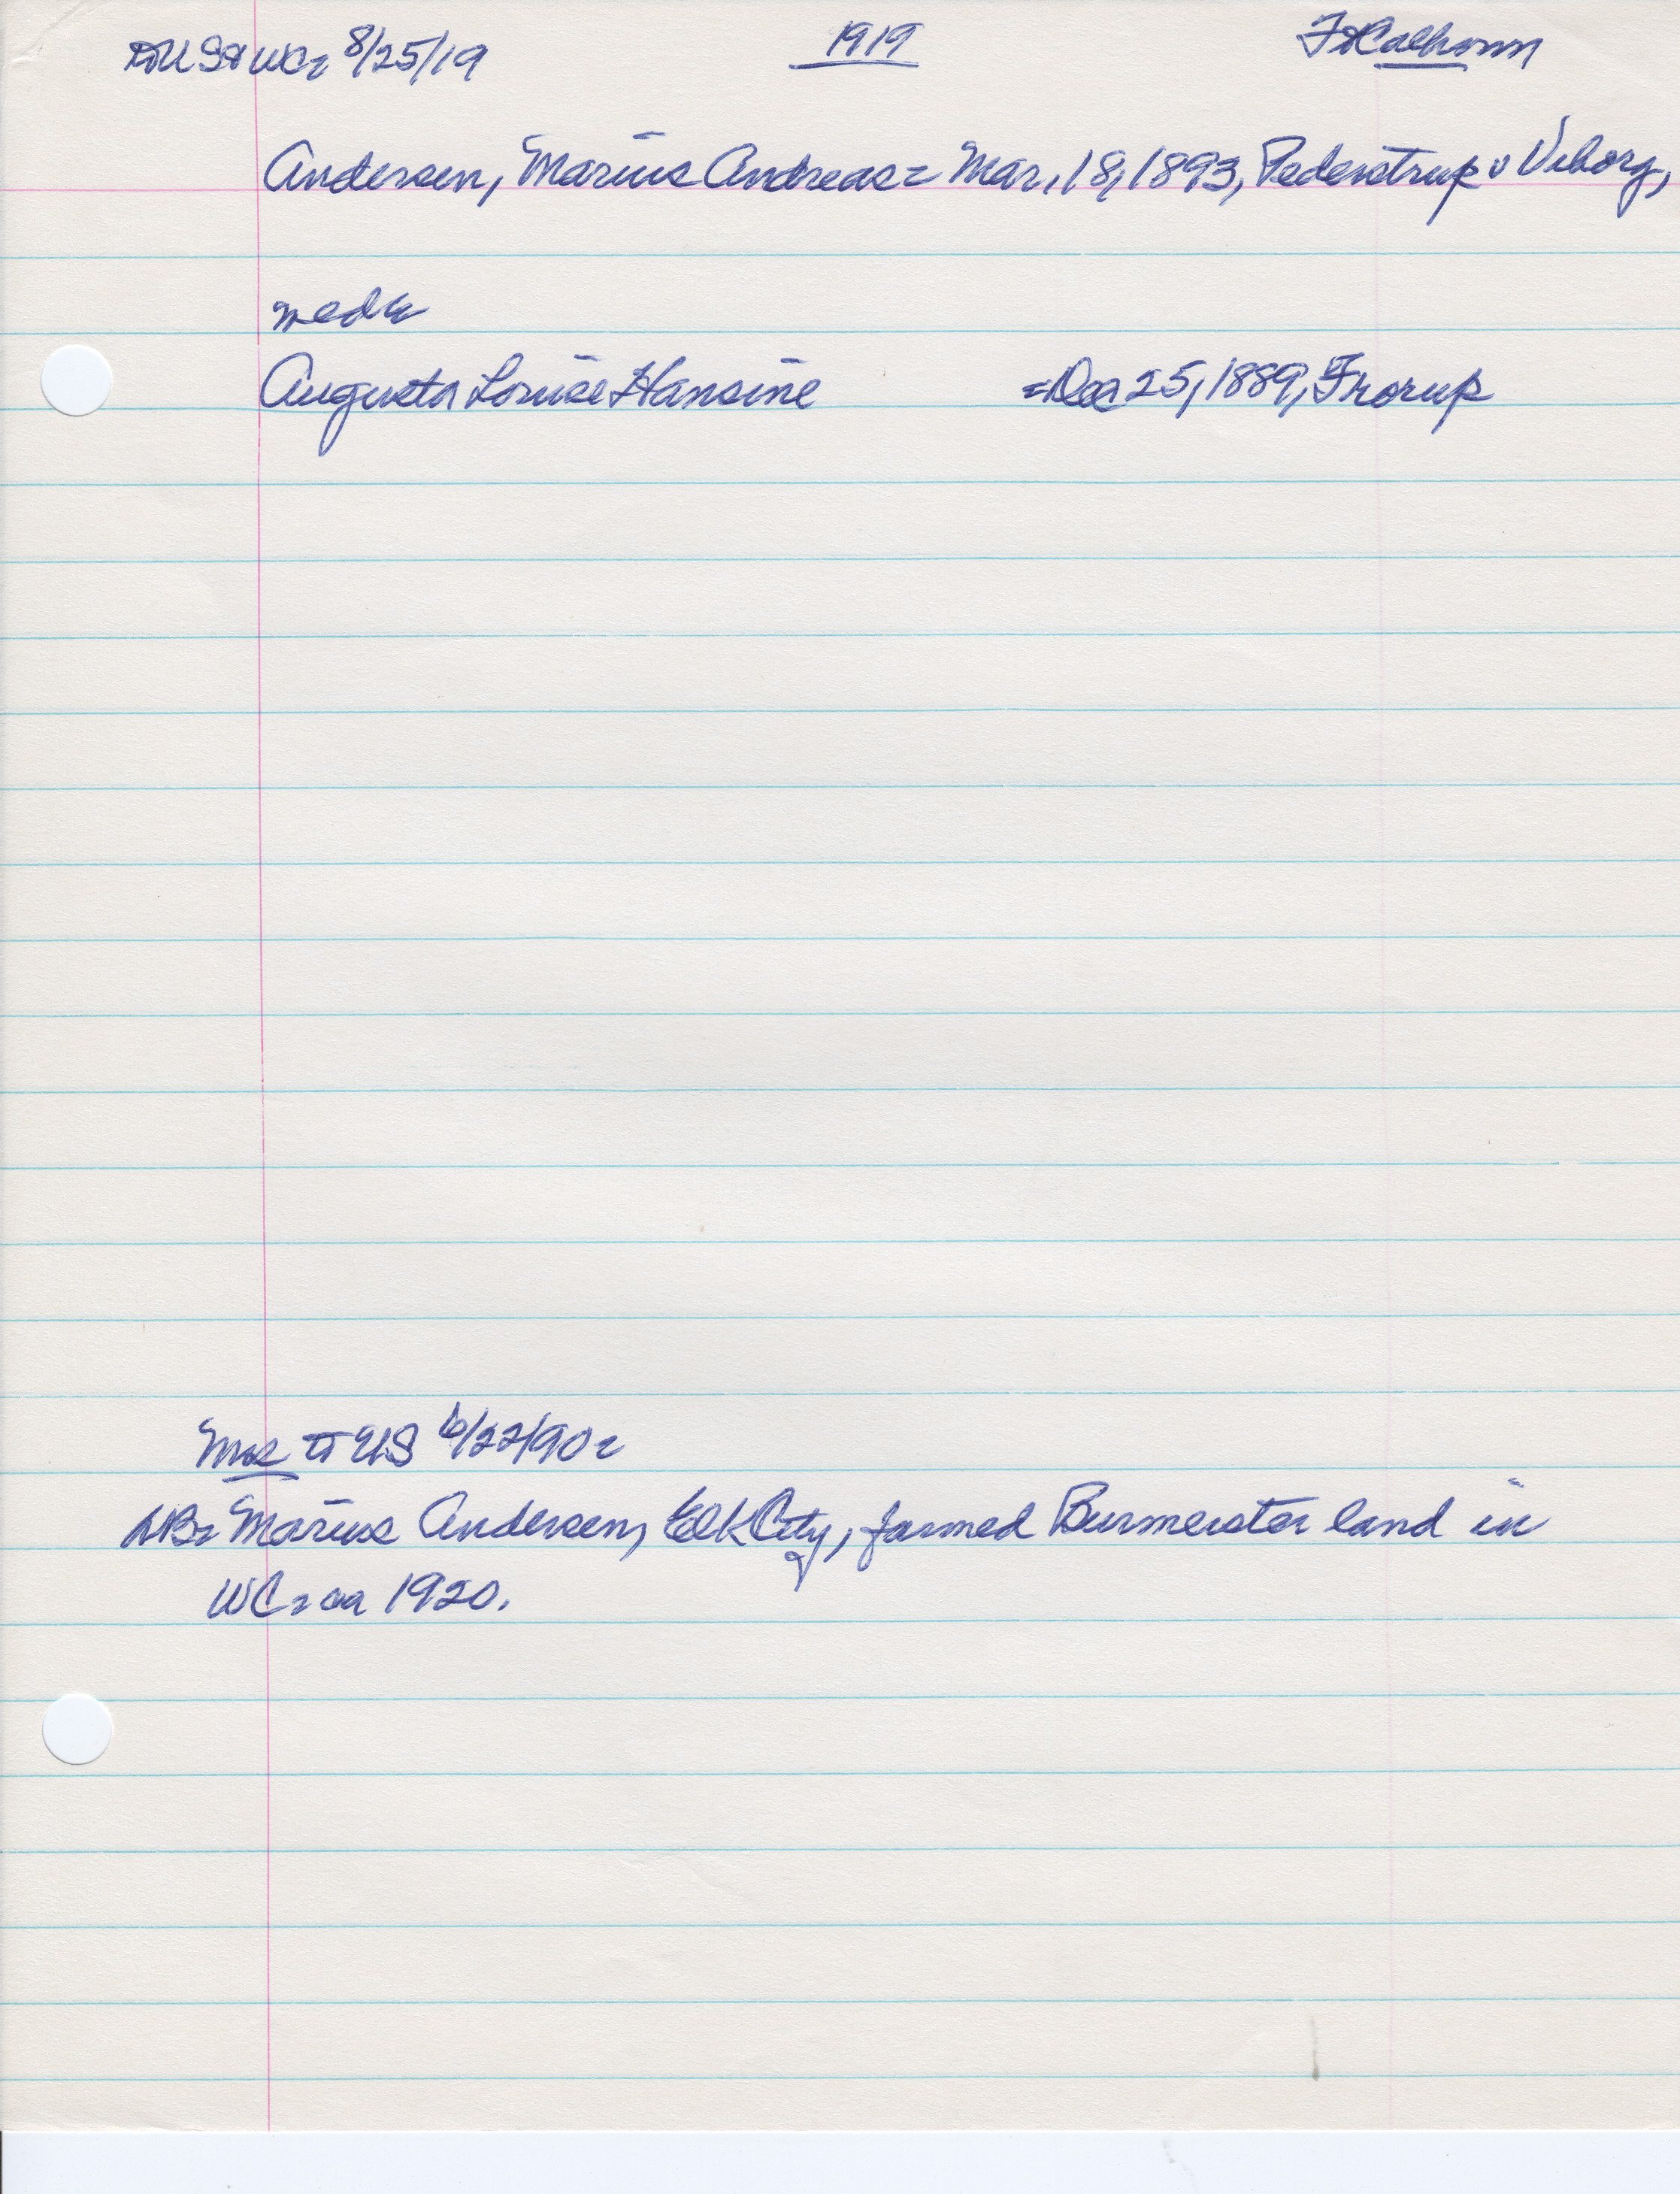 8/25/19 1919 Ft Calhoun
Andersen, Marius Andreas = Mar, 18, 1893, Pederstrup v Viborg,
Augusta Louise Hansine = Dec 25, 1889, Frorup
to US 6/22/90 =
NB= Marius Andersen, Elk City, farmed Burmeister land in
WC= ca 1920.